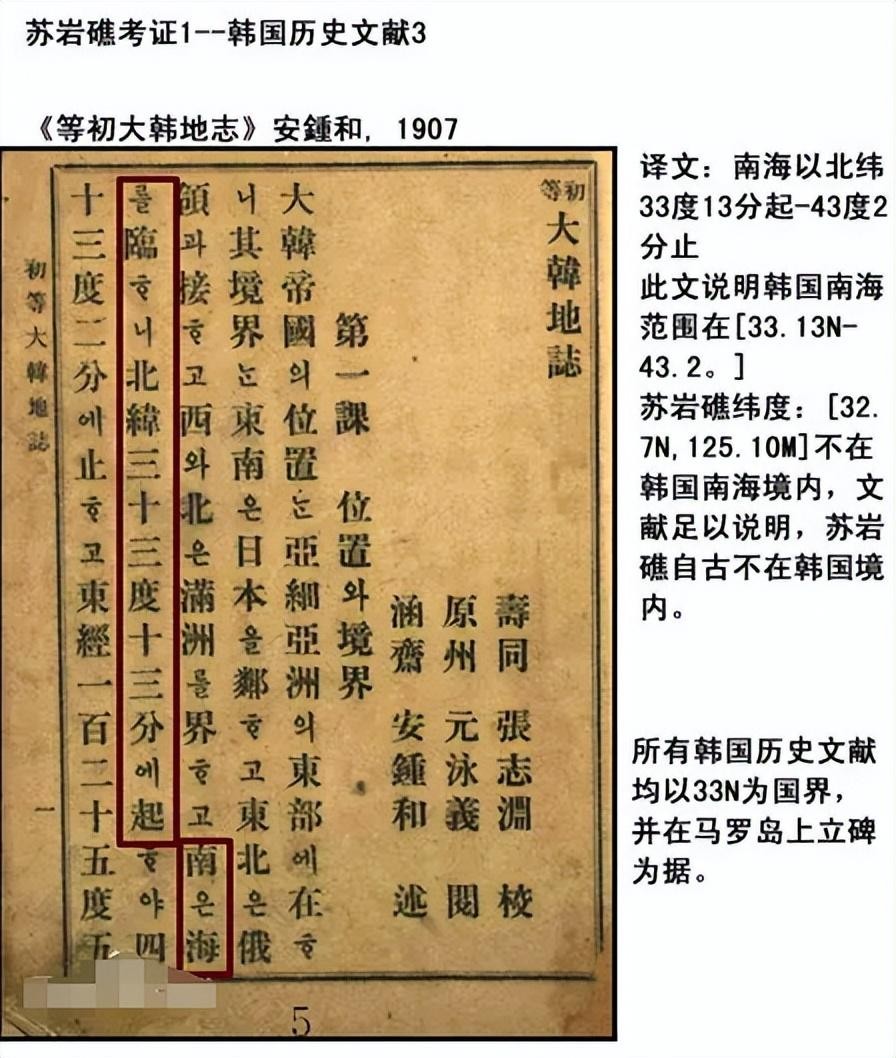 苏岩礁考证1--韩国历史文献3
《等初大韩地志》安鍾和, 1907
初等
大韓地誌
壽同 張志淵 校
原州 元泳義 閱
涵齋 安鍾和 述
第一課 位置와境界
大韓帝國의位置ᄂᆞᆫ亞細亞洲의東部에在ᄒᆞ
니其境界ᄂᆞᆫ東南은日本을鄰ᄒᆞ고東北은俄
領과接ᄒᆞ고西와北은滿洲를界ᄒᆞ고南은海
를臨ᄒᆞ니北緯三十三度十三分에起ᄒᆞ야四
十三度二分에止ᄒᆞ고東經一百二十五度五
初等大韓地誌
一
5
译文：南海以北纬
33度13分起-43度2
分止
此文说明韩国南海
范围在[33.13N-
43.2。]
苏岩礁纬度：[32.
7N,125.10M]不在
韩国南海境内，文
献足以说明，苏岩
礁自古不在韩国境
内。
所有韩国历史文献
均以33N为国界，
并在马罗岛上立碑
为据。